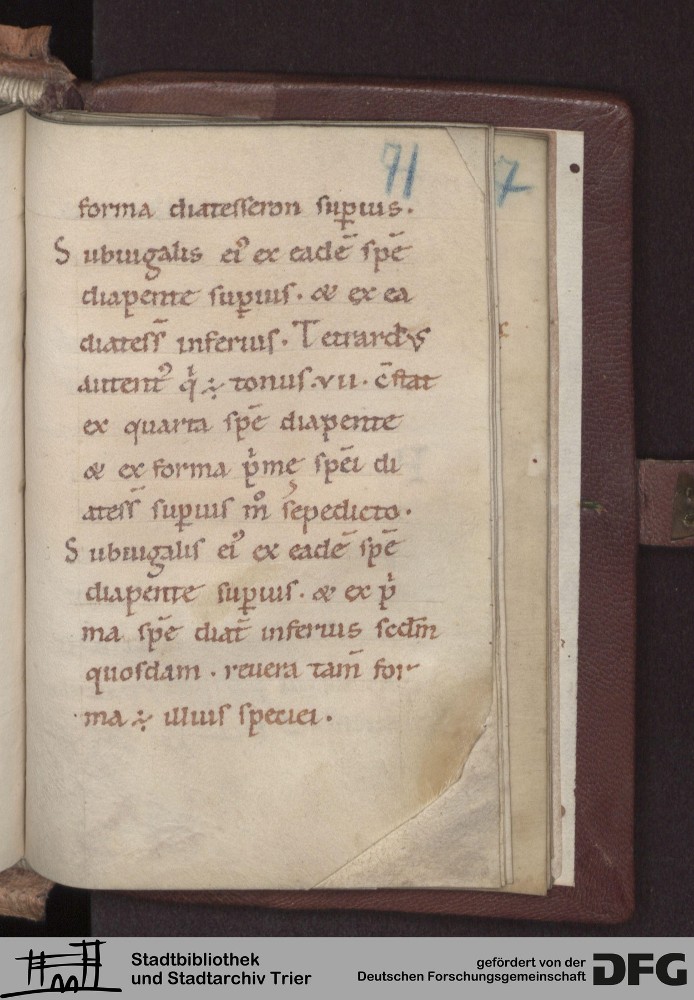 71
7
forma diatesseron suꝑius.
Subiugalis ei᷒ ex eadē spē
diapente suꝑius. & ex ea
diatess̄ inferius. Tetrardus
autent᷒ q̇ ÷ tonus .vii. c̄stat
ex quarta spē diapente
& ex forma p̍me spēi di
atess̄ suꝑius m̊ sepedicto.
Subiugalis ei᷒ ex eadē spē
diapente suꝑius. & ex p̍
ma spē diat̄ inferius scdm̄
quosdam. reuera tam̄ for
ma ÷ illius speciei.
Stadtbibliothek
und Stadtarchiv Trier
gefördert von der
Deutschen Forschungsgemeinschaft
DFG